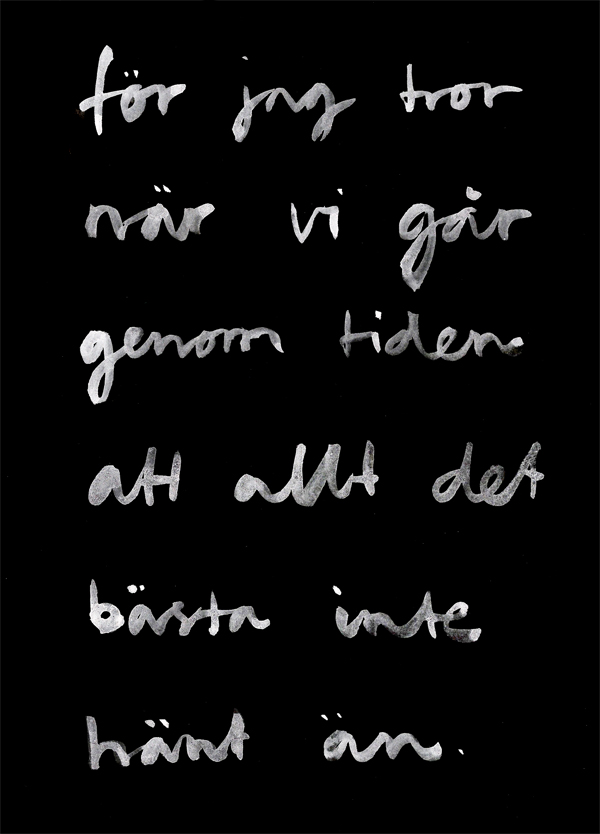 för jag tror
när vi går
genom tiden
att allt det
bästa inte
hänt än.